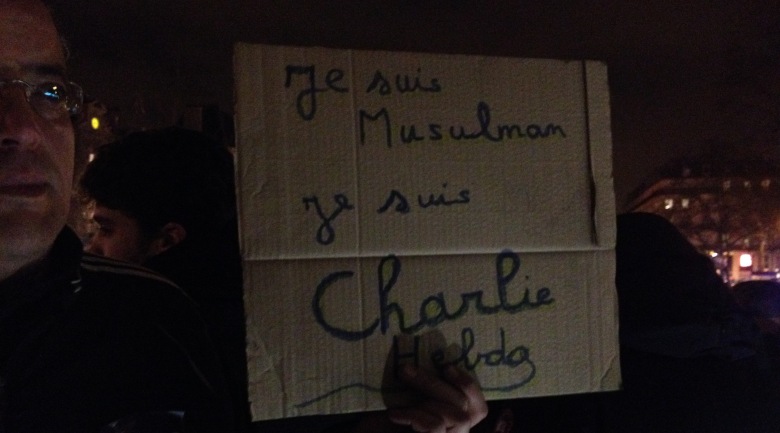 Je suis
Musulman
je suis
Charlie
Hebdo